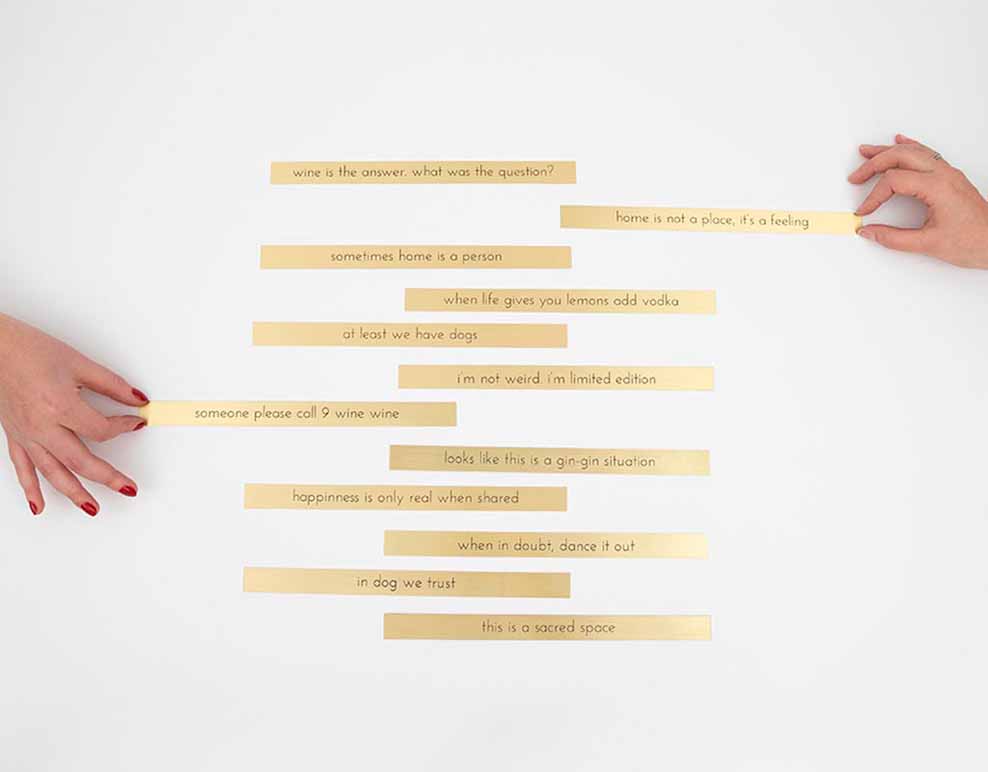 wine is the answer. what was the question?
home is not a place, it's a feeling
sometimes home is a person
when life gives you lemons add vodka
at least we have dogs
i'm not weird. i'm limited edition
someone please call 9 wine wine
looks like this is a gin-gin situation
happinness is only real when shared
when in doubt, dance it out
in dog we trust
this is a sacred space